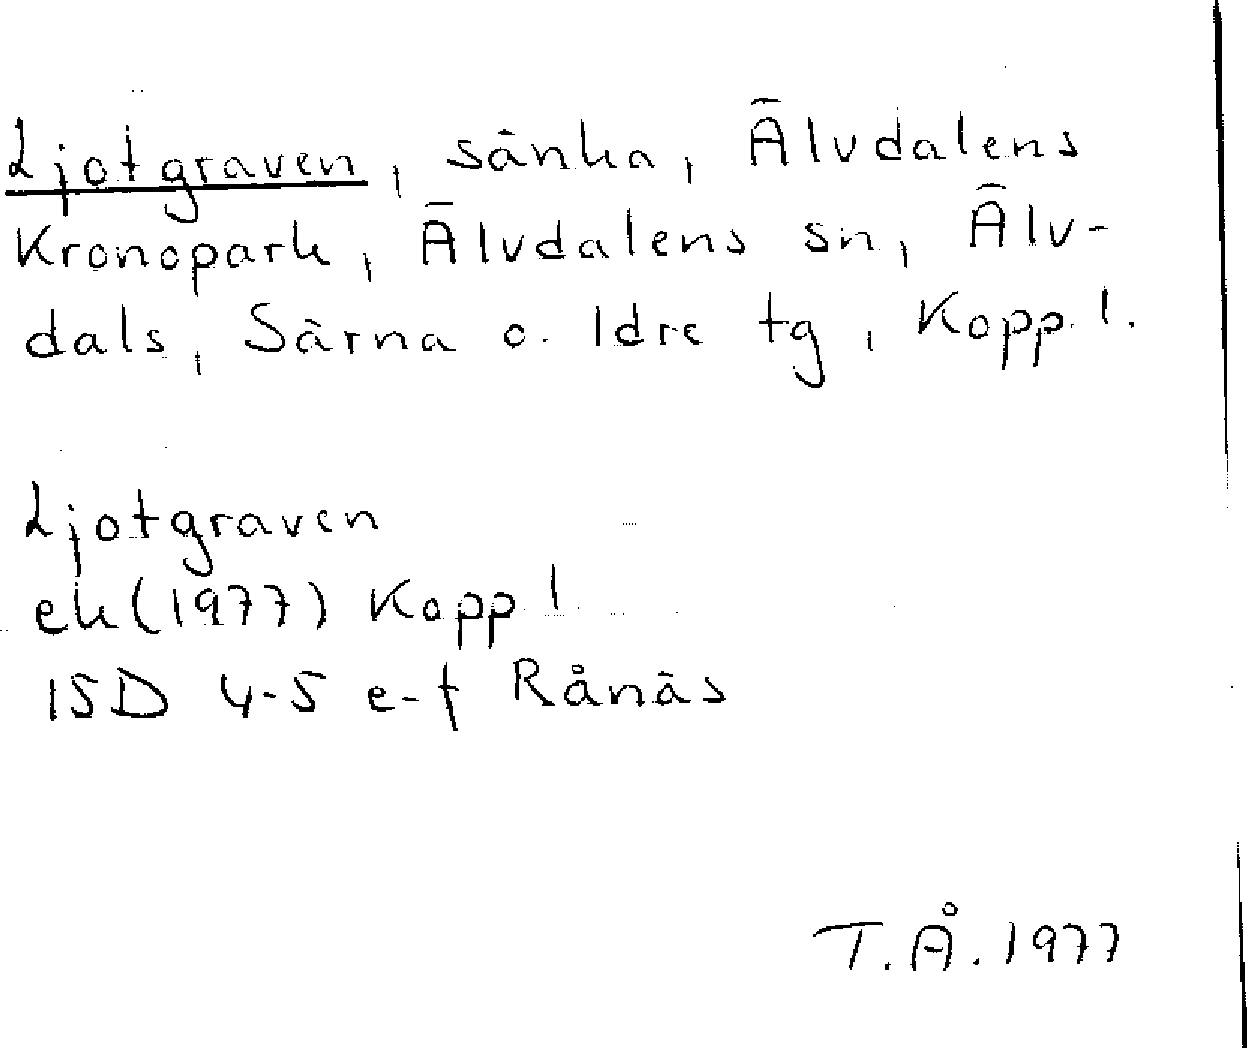 Ljotgraven, sänka, Älvdalens
Kronopark, Älvdalens sn, Älv-
dals, Särna o. Idre tg, Kopp. l.
Ljotgraven
ek(1977) Kopp l
15D 4-5 e-f Rånäs
T.Å. 1977